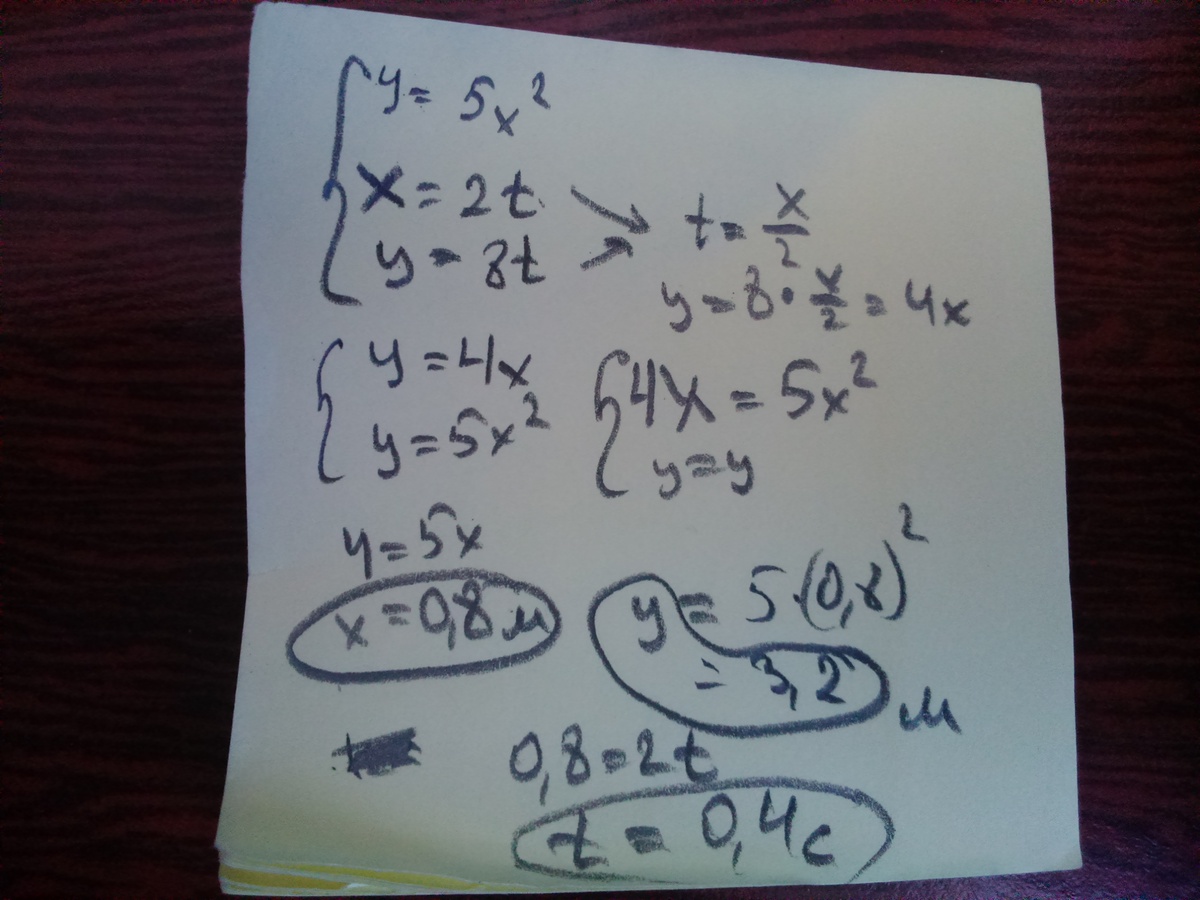 y = 5x²
x = 2t
y = 8t
t = x/2
y = 8 · x/2 = 4x
y = 4x
y = 5x²
4x = 5x²
y = y
y = 5x
x = 0,8 м
y = 5·(0,8)²
= 3,2 м
0,8 = 2t
t = 0,4 с